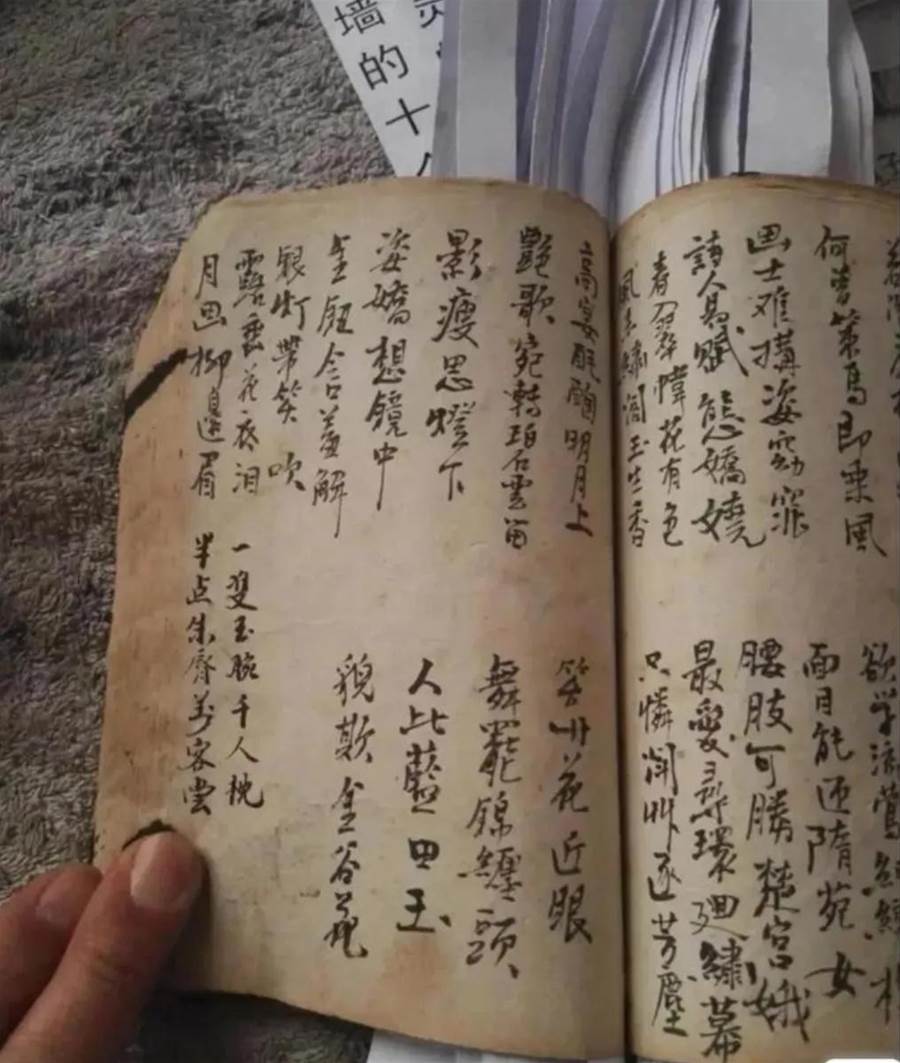 何曾策馬即乘風
画士难描姿窈窕
詩人為賦態嬌嬈
春 翠幃花有色
風 繡閣玉生香
欲学流鶯
面目能迎隋苑女
腰肢可勝楚宮娥
最愛 環迴繡幕
只憐 艸逐芳塵
高宴酕醄明月上
艷歌宛轉 雲留
影瘦思燈下
姿嬌想鏡中
金鈕含羞解
銀灯带笑吹
露垂花底泪
月画柳邊眉
花近眼
舞罷錦纏頭
人比藍田玉
貌欺金谷花
一雙玉腕千人枕
半点朱 万客
墙的十